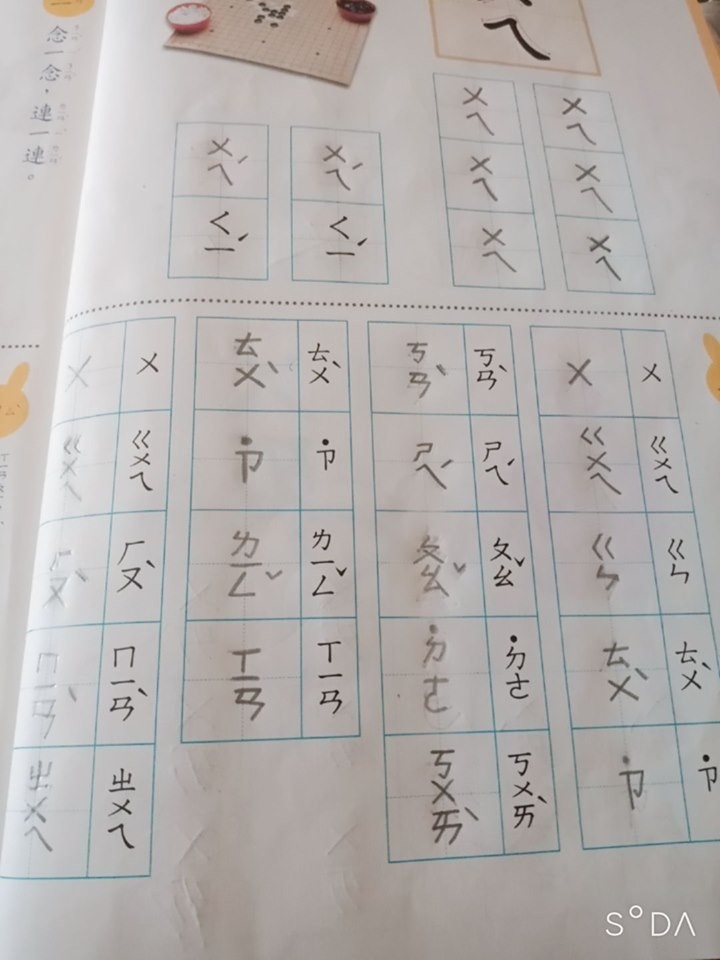 ㄟ
ㄨㄟ ㄨㄟ ㄨㄟ
ㄨㄟ ㄨㄟ ㄨㄟ
ㄨㄟˊ ㄑㄧˊ
ㄨㄟˊ ㄑㄧˊ
ㄨ ㄍㄨㄟ ㄍㄣ ㄊㄨˋ ˙ㄗ
ㄨ ㄍㄨㄟ ㄍㄣ ㄊㄨˋ ˙ㄗ
ㄎㄢˋ ㄕㄟˊ ㄆㄠˇ ˙ㄉㄜ ㄎㄨㄞˋ
ㄎㄢˋ ㄕㄟˊ ㄆㄠˇ ˙ㄉㄜ ㄎㄨㄞˋ
ㄊㄨˋ ˙ㄗ ㄌㄧㄥˇ ㄒㄧㄢ
ㄊㄨˋ ˙ㄗ ㄌㄧㄥˇ ㄒㄧㄢ
ㄨ ㄍㄨㄟ ㄏㄡˋ ㄇㄧㄢˋ ㄓㄨㄟ
ㄨ ㄍㄨㄟ ㄏㄡˋ ㄇㄧㄢˋ ㄓㄨㄟ
念一念，連一連。
S°DA